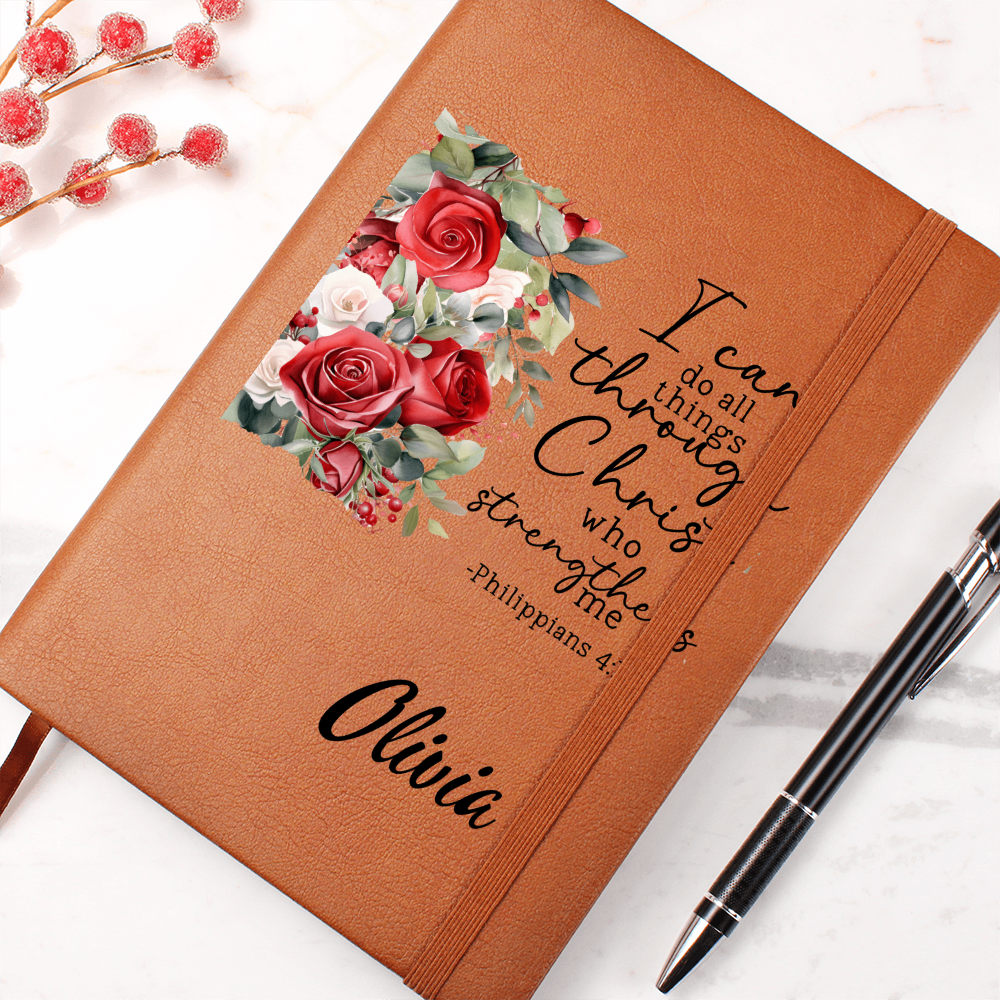 I can
do all
things
throug
Chris
who
strengthe s
me
-Philippians 4:
Olivia